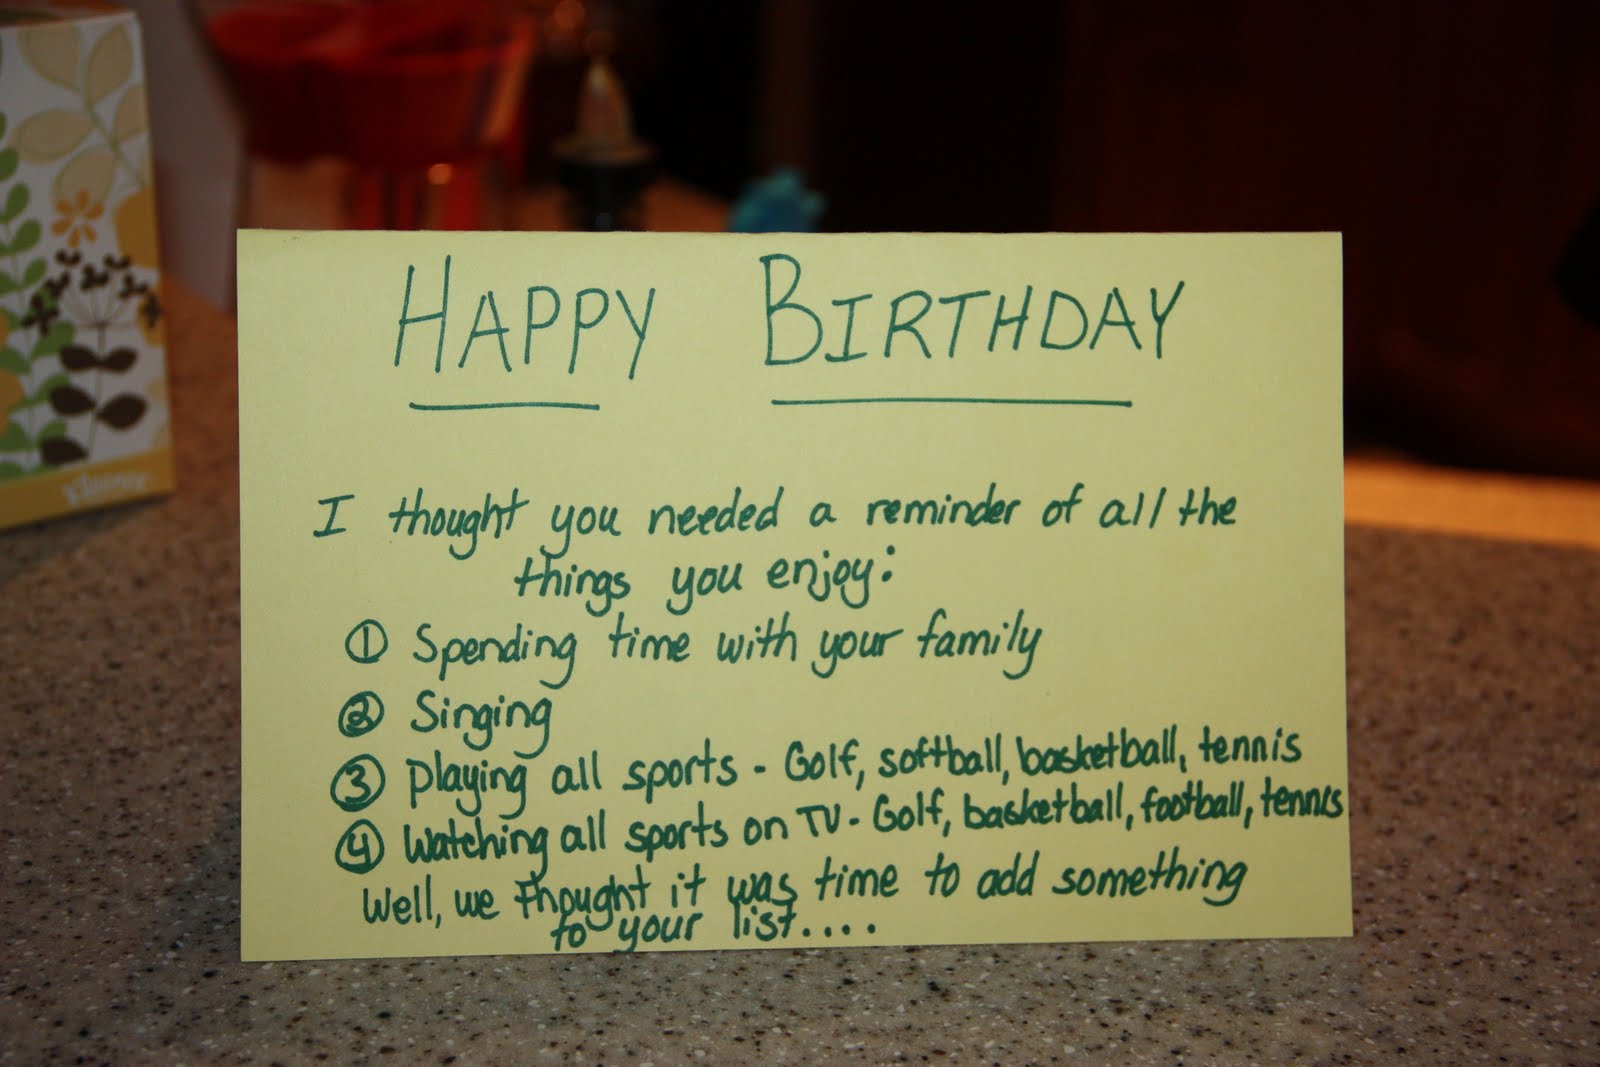 Kleenex
HAPPY BIRTHDAY
I thought you needed a reminder of all the
things you enjoy:
① Spending time with your family
② Singing
③ Playing all sports - Golf, softball, basketball, tennis
④ Watching all sports on TV - Golf, basketball, football, tennis
Well, we thought it was time to add something
to your list....